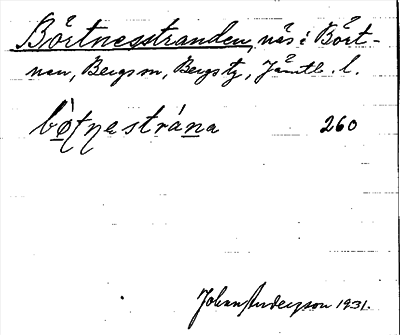 Börtnesstranden, näs i Bört-
nen, Bergs sn, Bergs tg, Jämtl. l.
bø̀tnestrána 260
Johan Anderson 1931.